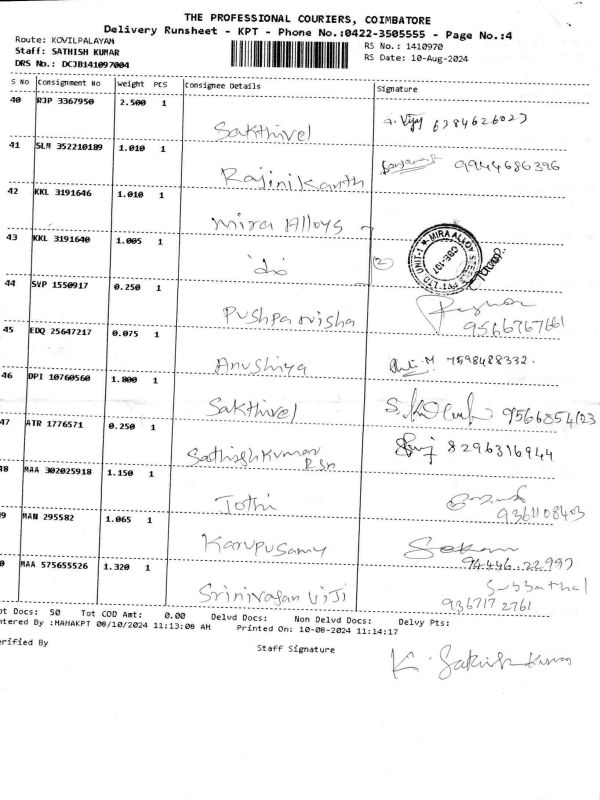 THE PROFESSIONAL COURIERS, COIMBATORE
Delivery Runsheet - KPT - Phone No.:0422-3505555 - Page No.:4
Route: KOVILPALAYAM
RS No.: 1410970
Staff: SATHISH KUMAR
RS Date: 10-Aug-2024
DRS No.: DCJB141097004
S No Consignment No Weight PCS Consignee Details Signature
40 RJP 3367950 2.500 1
Sakthivel A. Vijay 6384626023
41 SLM 352210189 1.010 1
Rajinikanth 9944686396
42 KKL 3191646 1.010 1
Mira Alloys
43 KKL 3191640 1.005 1
do 2 MIRA ALLOY STEELS PVT LTD UNIT-1 CBE-107
44 SVP 1550917 0.250 1
Pushpa nisha 9566767661
45 EDQ 25647217 0.075 1
Anushiya 7598488332.
46 DPI 10760560 1.800 1
Sakthivel 9566854123
47 ATR 1776571 0.250 1
Sathishkumar 8296316944
RSM
48 MAA 302025918 1.150 1
Jothi 9361108403
49 MAN 295582 1.065 1
Karupusamy Sekar
94446.22997
50 MAA 575655526 1.320 1
Srinivasan Viji Subbathal
936717 2761
Tot Docs: 50 Tot COD Amt: 0.00 Delvd Docs: Non Delvd Docs: Delvy Pts:
Entered By :MAHAKPT 08/10/2024 11:13:08 AM Printed On: 10-08-2024 11:14:17
Verified By
Staff Signature
K. Sathish Kumar